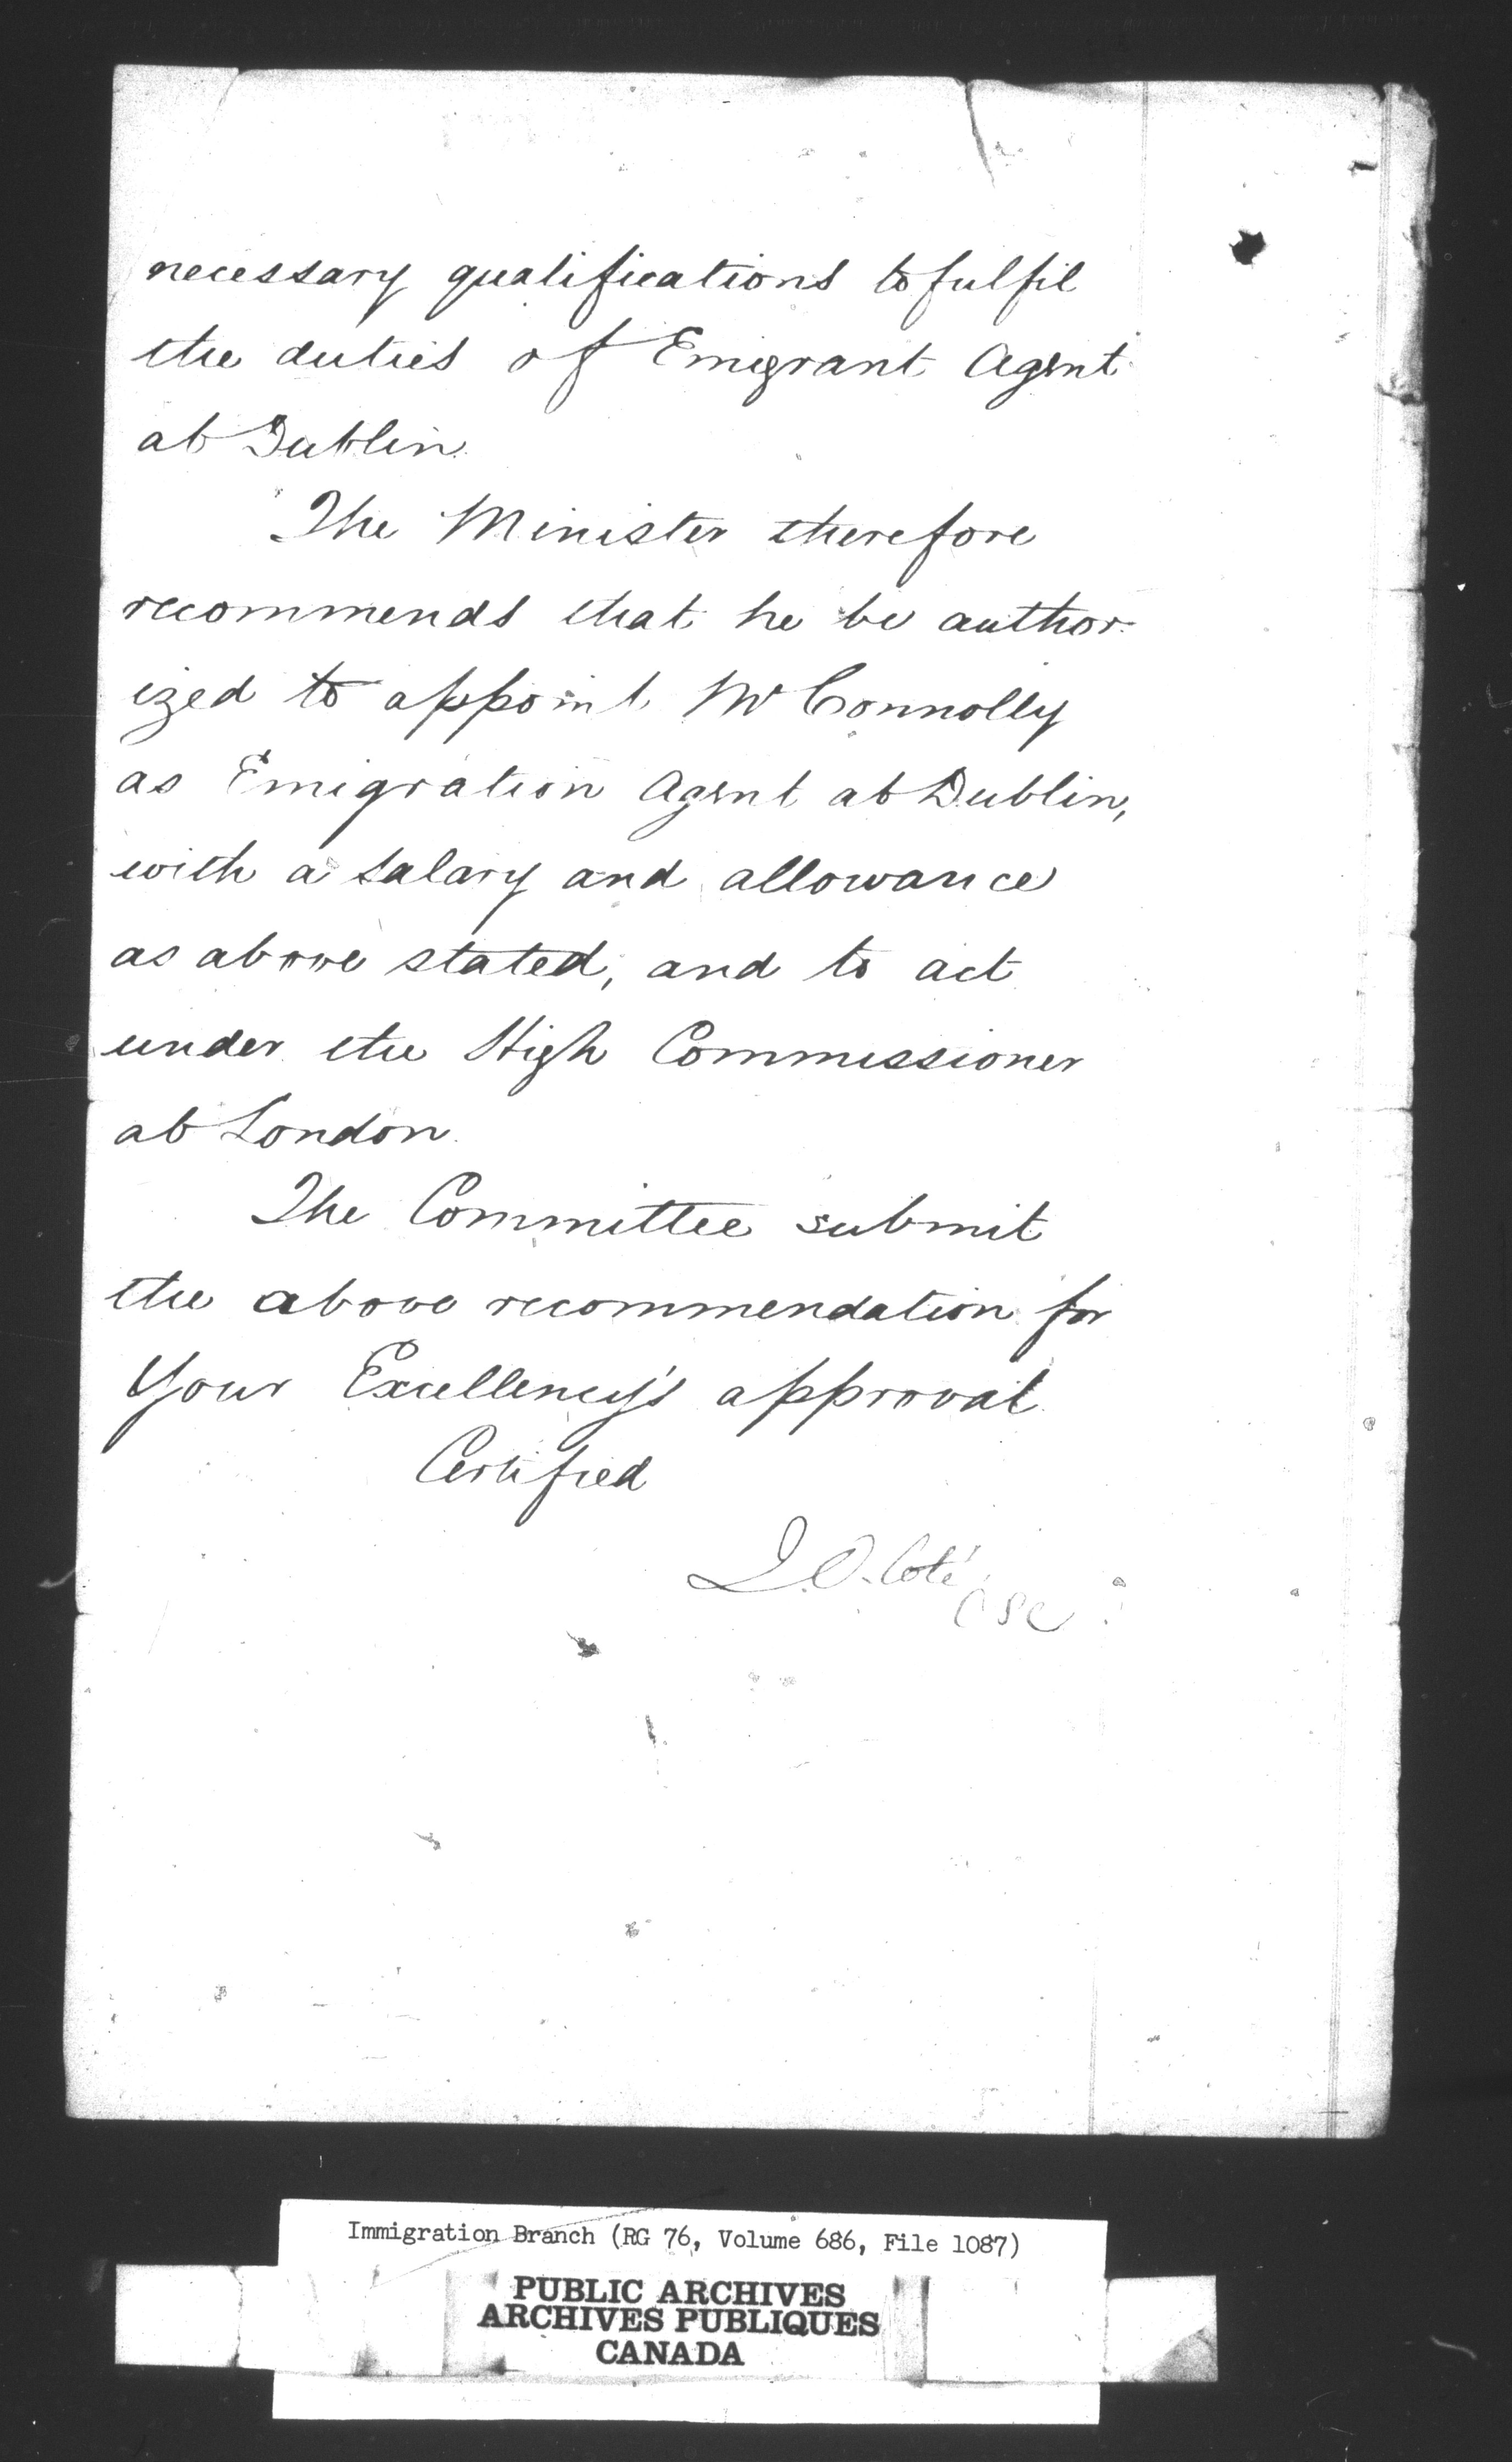 necessary qualifications to fulfil
the duties of Emigrant Agent
at Dublin.
The Minister therefore
recommends that he be author-
ized to appoint Mr Connolly
as Emigration Agent at Dublin,
with a salary and allowance
as above stated, and to act
under the High Commissioner
at London.
The Committee submit
the above recommendation for
Your Excellency's approval
Certified
J.O. Coté
CPC
Immigration Branch (RG 76, Volume 686, File 1087)
PUBLIC ARCHIVES
ARCHIVES PUBLIQUES
CANADA